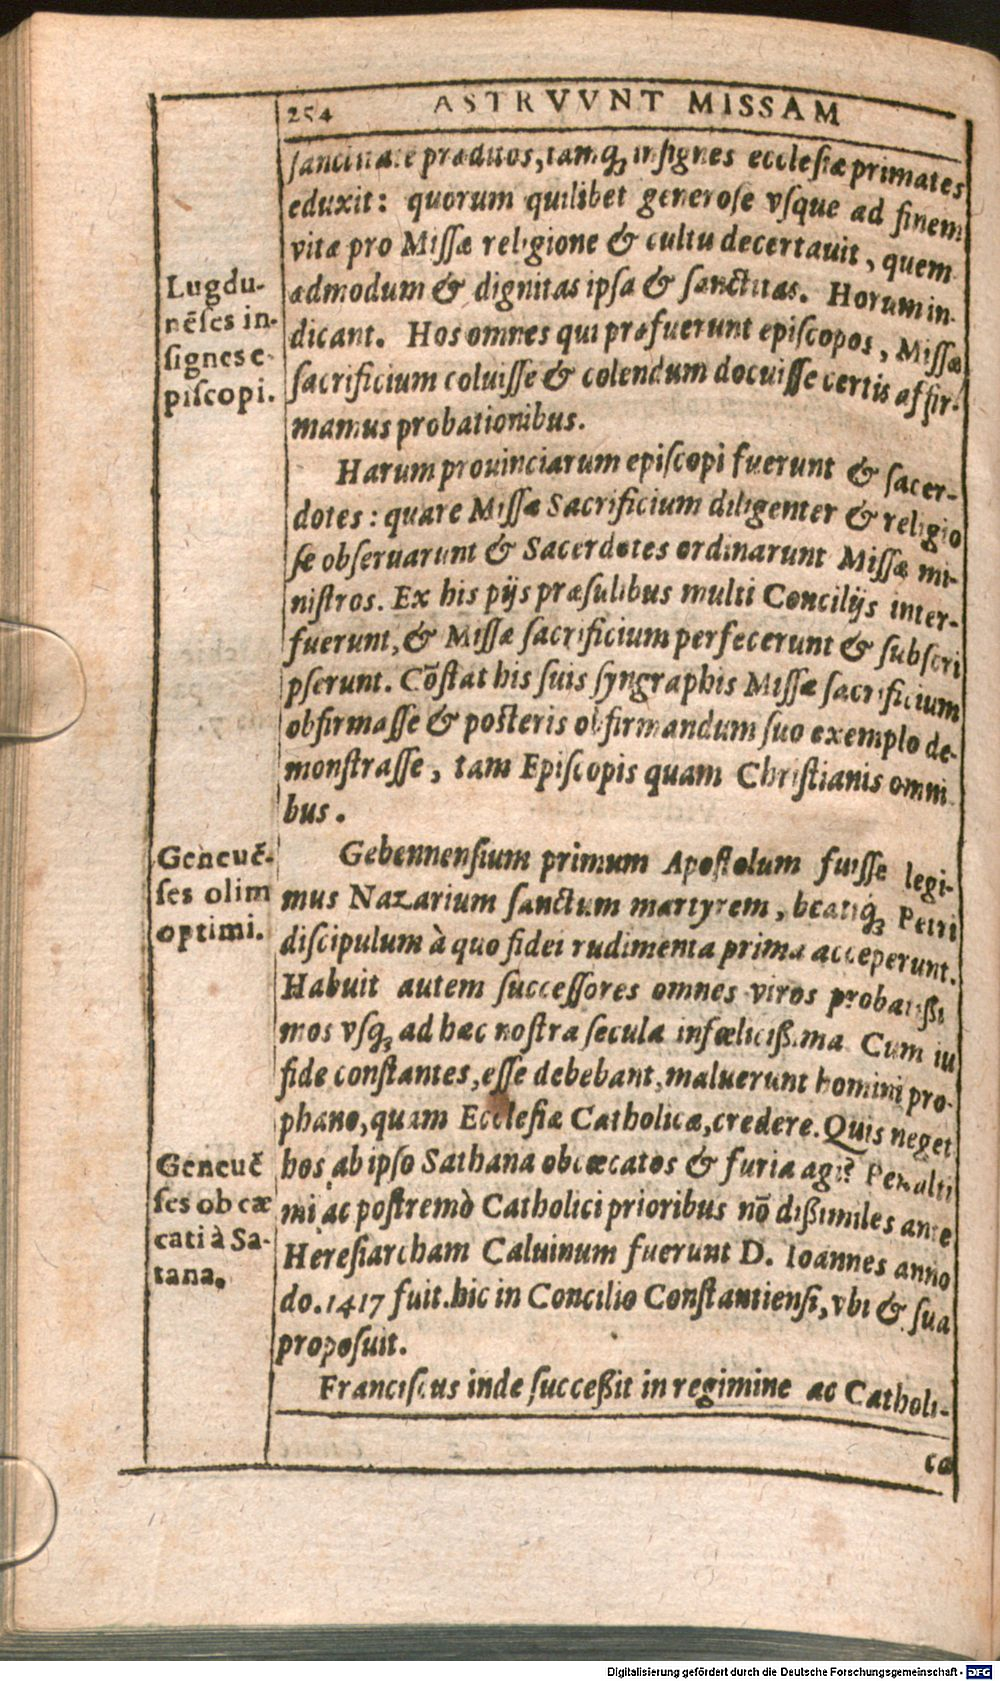 254 ASTRVVNT MISSAM
sanctitate præditos, tamq́; insignes ecclesiæ primates
eduxit: quorum quilibet generose vsque ad finem
vitæ pro Missæ religione & cultu decertauit, quem
admodum & dignitas ipsa & sanctitas. Horum in-
dicant. Hos omnes qui præfuerunt episcopos, Missæ
sacrificium coluisse & colendum docuisse certis affir-
mamus probationibus.
Lugdu-
nẽses in-
signes e-
piscopi.
Harum prouinciarum episcopi fuerunt & sacer-
dotes: quare Missæ Sacrificium diligenter & religio
se obseruarunt & Sacerdotes ordinarunt Missæ mi-
nistros. Ex his pijs præsulibus multi Concilijs inter-
fuerunt, & Missæ sacrificium perfecerunt & subscri
pserunt. Cõstat his suis syngraphis Missæ sacrificium
obfirmasse & posteris obfirmandum suo exemplo de-
monstrasse, tam Episcopis quam Christianis omni
bus.
Gebennensium primum Apostolum fuisse legi-
mus Nazarium sanctum martyrem, beatiq́; Petri
discipulum à quo fidei rudimenta prima acceperunt.
Habuit autem successores omnes viros probatißi
mos vsq́; ad hæc nostra secula infœlicißima. Cum in
fide constantes, esse debebant, maluerunt homini pro-
phano, quam Ecclesiæ Catholicæ, credere. Quis neget
hos ab ipso Sathana obcæcatos & furia agi? Penulti
mi ac postremò Catholici prioribus nõ dißimiles ante
Heresiarcham Caluinum fuerunt D. Ioannes anno
do. 1417 fuit. hic in Concilio Constantiensi, vbi & sua
proposuit.
Geneuẽ-
ses olim
optimi.
Geneuẽ
ses obcæ
cati à Sa-
tana.
Franciscus inde succeßit in regimine ac Catholi-
ca
Digitalisierung gefördert durch die Deutsche Forschungsgemeinschaft - DFG